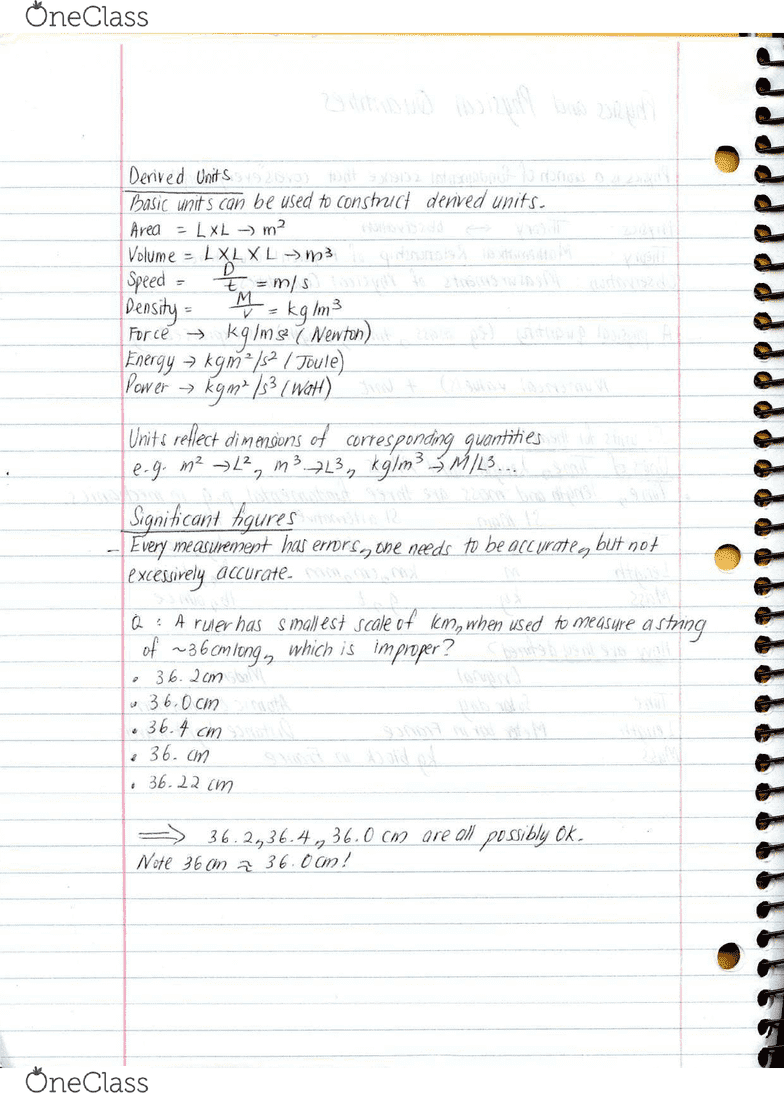 OneClass
Derived Units
Basic units can be used to construct derived units.
Area = L×L → m²
Volume = L×L×L → m³
Speed = D/t = m/s
Density = M/V = kg/m³
Force → kg/ms² (Newton)
Energy → kgm²/s² (Joule)
Power → kgm²/s³ (Watt)
Units reflect dimensions of corresponding quantities
e.g. m² → L², m³ → L³, kg/m³ → M/L³...
Significant figures
- Every measurement has errors, one needs to be accurate, but not
excessively accurate.
Q: A ruler has smallest scale of 1cm, when used to measure a string
of ~36cm long, which is improper?
• 36.2cm
• 36.0cm
• 36.4 cm
• 36. cm
• 36.22 cm
⇒ 36.2, 36.4, 36.0 cm are all possibly OK.
Note 36cm ≈ 36.0cm!
OneClass